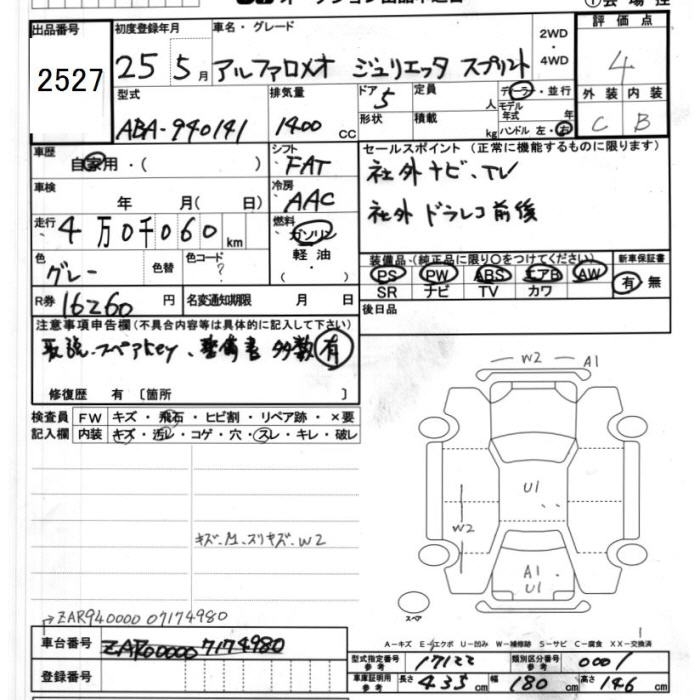 出品番号
2527
初度登録年月
25 5月
車名・グレード
アルファロメオ ジュリエッタ スプリント
2WD
・
4WD
評価点
4
外装 内装
C B
型式
ABA-940141
排気量
1400 cc
ドア
5
定員
人
形状
積載
kg
ディーラー・並行
モデル年式 年
ハンドル 左・右
車歴
自家用・( )
シフト
FAT
セールスポイント (正常に機能するものに限ります)
社外ナビ、TV
社外 ドラレコ前後
車検
年 月( 日)
冷房
AAC
走行
4万0千060km
燃料
ガソリン
軽油
( ・ )
色
グレー
色替
色コード
?
装備品(純正品に限り○をつけてください)
PS PW ABS エアB AW
SR ナビ TV カワ
新車保証書
有 無
R券
16260円
名変通知期限 月 日
後日品
注意事項申告欄(不具合内容等は具体的に記入して下さい)
取説、スペアkey、整備書 多数有
修復歴 有 〔箇所 〕
検査員記入欄
FW キズ・飛石・ヒビ割・リペア跡・×要
内装 キズ・汚レ・コゲ・穴・スレ・キレ・破レ
W2 A1
U1
W2
A1
U1
スペア
→ZAR940000 07174980
車台番号
ZAR00000 7174980
登録番号
A−キズ E−エクボ U−凹み W−補修跡 S−サビ C−腐食 XX−交換済
型式指定番号 参考
17122
類別区分番号 参考
0001
車庫証明用 参考
長さ 435cm 幅 180cm 高さ 146cm